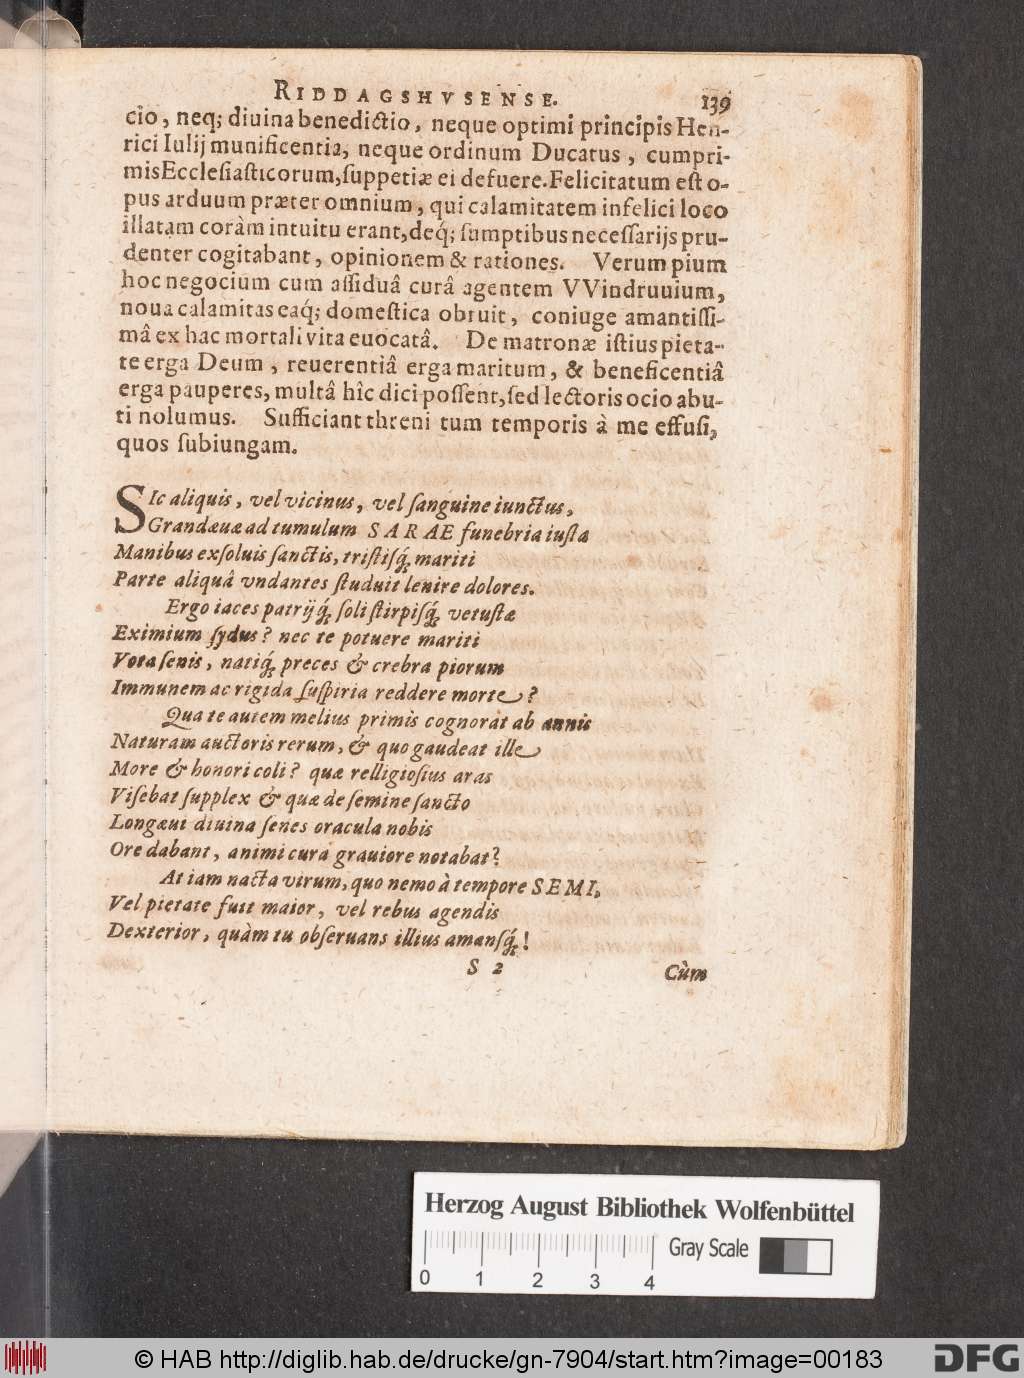 RIDDAGSHVSENSE. 139
cio, neq; diuina benedictio, neque optimi principis Hen-
rici Iulij munificentia, neque ordinum Ducatus, cumpri-
mis Ecclesiasticorum, suppetiæ ei defuere. Felicitatum est o-
pus arduum præter omnium, qui calamitatem infelici loco
illatam coràm intuitu erant, deq́; sumptibus necessarijs pru-
denter cogitabant, opinionem & rationes. Verum pium
hoc negocium cum assiduâ curâ agentem VVindruuium,
noua calamitas eaq́; domestica obruit, coniuge amantissi-
mâ ex hac mortali vita euocatâ. De matronæ istius pieta-
te erga Deum, reuerentiâ erga maritum, & beneficentiâ
erga pauperes, multâ hîc dici possent, sed lectoris ocio abu-
ti nolumus. Sufficiant threni tum temporis à me effusi,
quos subiungam.
SIc aliquis, vel vicinus, vel sanguine iunctus,
Grandæuæ ad tumulum SARAE funebria iusta
Manibus exsoluis sanctis, tristisq́; mariti
Parte aliquâ vndantes studuit lenire dolores.
Ergo iaces patrijq́; soli stirpisq́; vetustæ
Eximium sydus? nec te potuere mariti
Vota senis, natiq́; preces & crebra piorum
Immunem ac rigida suspiria reddere morte?
Qua te autem melius primis cognorat ab annis
Naturam auctoris rerum, & quo gaudeat ille
More & honori coli? quæ relligiosius aras
Visebat supplex & quæ de semine sancto
Longæui diuina senes oracula nobis
Ore dabant, animi cura grauiore notabat?
At iam nacta virum, quo nemo à tempore SEMI,
Vel pietate fuit maior, vel rebus agendis
Dexterior, quàm tu obseruans illius amansq́;!
S 2 Cùm
Herzog August Bibliothek Wolfenbüttel
Gray Scale
0 1 2 3 4
© HAB http://diglib.hab.de/drucke/gn-7904/start.htm?image=00183
DFG